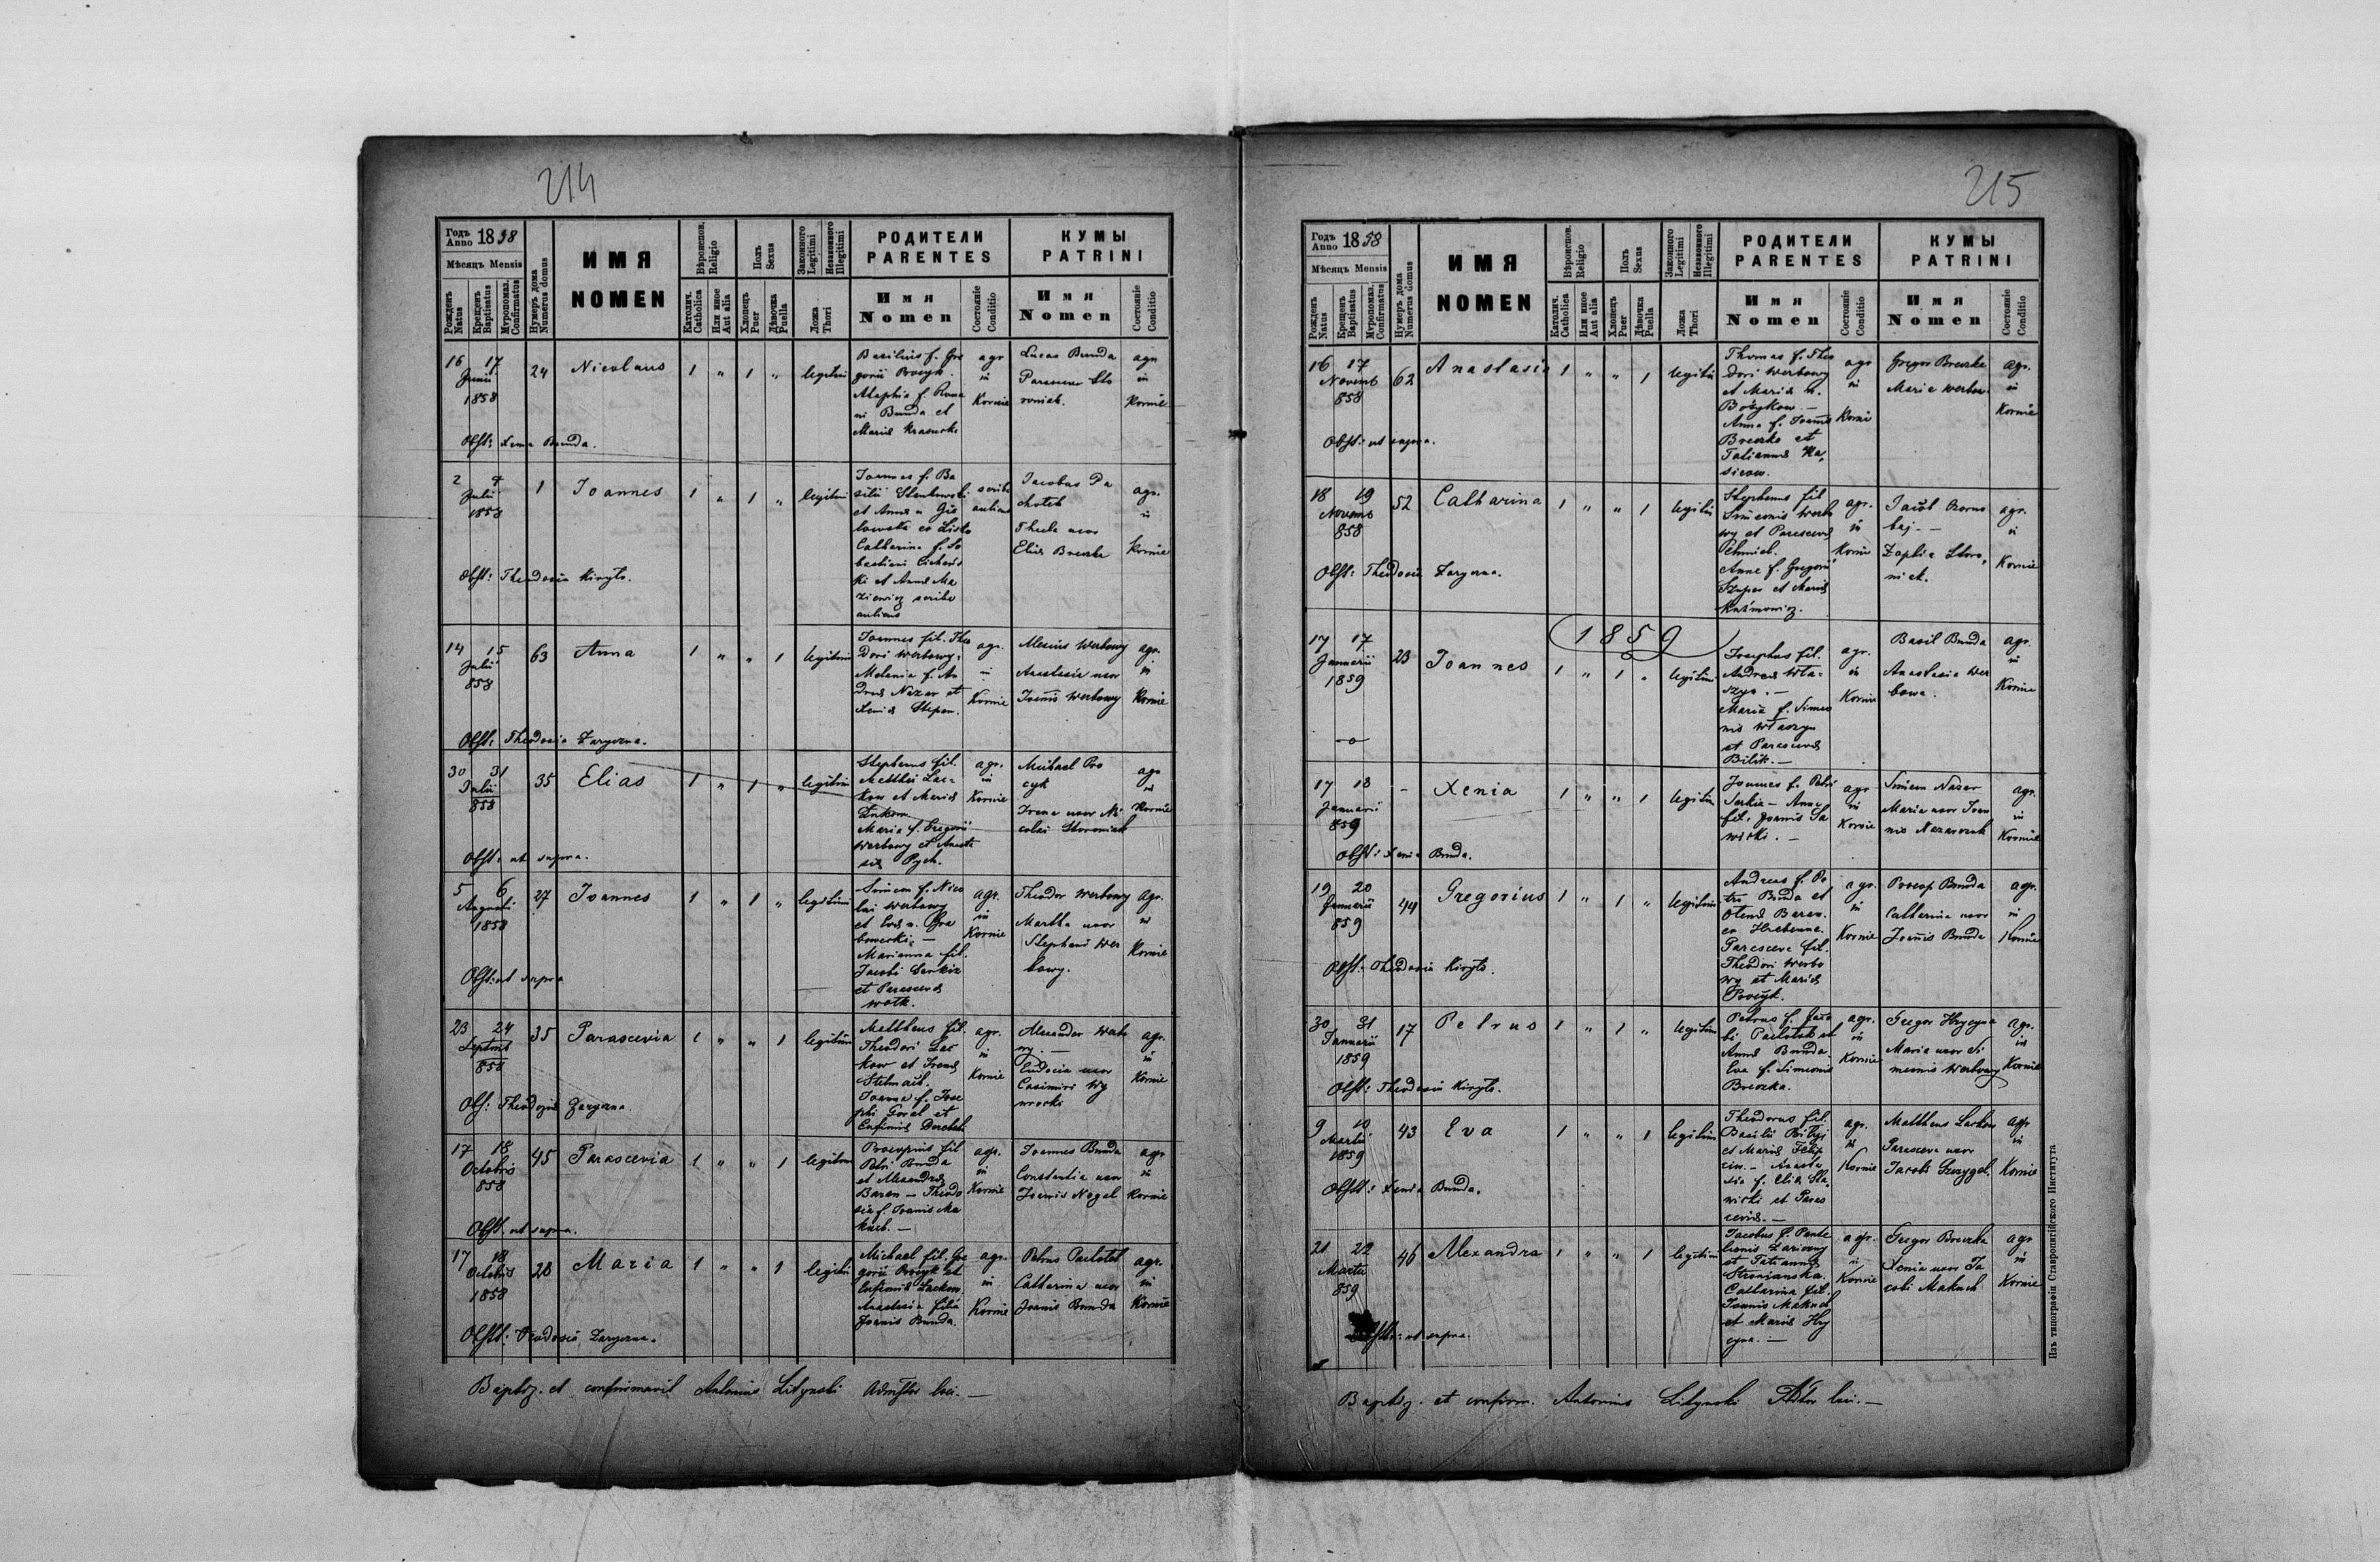 214
Годъ Anno 1858
Мѣсяцъ Mensis
Рожденъ Natus
Крещенъ Baptisatus
Мѵропомаз. Confirmatus
Нумеръ дома Numerus domus
ИМЯ
NOMEN
Вѣроиспов. Religio
Католич. Catholica
Или иное Aut alia
Полъ Sexus
Хлопецъ Puer
Дѣвочка Puella
Законного Legitimi
Незаконного Illegitimi
Ложа Thori
РОДИТЕЛИ
PARENTES
Имя
Nomen
Состояніе Conditio
КУМЫ
PATRINI
Имя
Nomen
Состояніе Conditio
16 17 Junii 1858 24 Nicolaus 1 " 1 " legitimi
Basilius f. Gre
gorii Procyk.
f. Roma
ni Bunda et
Maria
agr in Kornie
Lucas Bunda
agr in Kornie
Obst: Xenia Bunda.
2 4 Julii 1858 1 Joannes 1 " 1 " legitimi
Joannes f. Ba
silii
et Anna
Catharina f. Se
bastiani
ki et Anna Ma
ziewicz scriba
Jacobus Pa
Thecla uxor
Elia Breszka
agr. in Kornie
Obst: Theodosia Kiryło.
14 15 Julii 858 63 Anna 1 " " 1 legitimi
Joannes fil. Theo
dori Werbowy,
Melania f. An
drea Nazar et
Xenia Stepan.
agr. in Kornie
Alexius Werbowy
Anastasia uxor
Joannis Werbowy
agr. in Kornie
Obst: Theodosia Zaryczna.
30 31 Julii 858 35 Elias 1 " 1 " legitimi
Stephanus fil.
Matthei Lac-
kow et Maria
Maria f. Gregorii
Werbowy et Anasta
sia Pych.
agr. in Kornie
Michael Pro
cyk
Irena uxor Ni
colai Storoniak
agr in Kornie
Obst: ut supra.
5 6 Augusti 1858 27 Joannes 1 " 1 " legitimi
Simeon f. Nico
lai Werbowy
et Eva n. Gra
bowecki. —
Marianna fil.
Jacobi Senkiw
et Parasceva
agr. in Kornie
Theodor Werbowy
Martha uxor
Stephani Wer
bowy.
agr. in Kornie
Obst: ut supra
23 24 Septemb 858 35 Parascevia 1 " " 1 legitimi
Mattheus fil.
Theodori Lac
kow et Irena
Stelmach.
Joanna f. Jose
phi Goral et
Eufimia
agr. in Kornie
Alexander Werbo
wy. —
Eudocia uxor
Casimiri
agr. in Kornie
Obst: Theodozia Zaryczna.
17 18 Octobris 858 45 Parascevia 1 " " 1 legitimi
Procopius fil
Petri Bunda
et Alexandra
Baran — Theodo
sia f. Joannis Ma
kuch. —
agr. in Kornie
Joannes Bunda
Constantia uxor
Joannis Nagal
agr in Kornie
Obst. ut supra.
17 18 Octobris 1858 28 Maria 1 " " 1 legitimi
Michael fil. Gre
gorii Procyk et
Eufimia Lackow.
Anastasia filia
Joannis Bunda.
agr. in Kornie
Petrus Pachotek
Catharina uxor
Joannis Bunda
agr. in Kornie
Obst: Teodosia Zaryczna.
Baptiz. et confirmavit Antonius Litynski Admstor loci. —
215
Годъ Anno 1858
Мѣсяцъ Mensis
Рожденъ Natus
Крещенъ Baptisatus
Мѵропомаз. Confirmatus
Нумеръ дома Numerus domus
ИМЯ
NOMEN
Вѣроиспов. Religio
Католич. Catholica
Или иное Aut alia
Полъ Sexus
Хлопецъ Puer
Дѣвочка Puella
Законного Legitimi
Незаконного Illegitimi
Ложа Thori
РОДИТЕЛИ
PARENTES
Имя
Nomen
Состояніе Conditio
КУМЫ
PATRINI
Имя
Nomen
Состояніе Conditio
16 17 Novemb 858 62 Anastasia 1 " " 1 legitimi
Thomas f. Theo
dori Werbowy
et Maria n.
Bożykow. —
Anna f. Joannis
Breszko et
Tatianna
agr in Kornie
Gregor Breszka
Maria Werbow.
agr. in Kornie
Obst: ut supra.
18 19 Novemb 858 52 Catharina 1 " " 1 legitimi
Stephanus fil
Simeonis Werbo
wy et Parasceva
Anna f. Gregorii
et Maria
Kuźmowicz.
agr. in Kornie
Jacob
Zophia Storo,
niak.
agr. in Kornie
Obst: Theodosia Zaryczna.
1859
17 17 Januarii 1859 23 Joannes 1 " 1 " legitimi
Josephus fil.
Andrea Wła-
szyn. —
Maria f. Simeo
nis Właszyn
et Parasceva
Bilik. —
agr. in Kornie
Basil Bunda
Anastasia Wer
bowa.
agr. in Kornie
—o—
17 18 Januarii 859 – Xenia 1 " " 1 legitimi
Joannes f. Petri
Senkiw — Anna
fil. Joannis Sa
wicki. —
agr in Kornie
Simeon Nazar
Maria uxor Joan
nis Nazarczuk
agr. in Kornie
Obst: Xenia Bunda.
19 20 Januarii 859 44 Gregorius 1 " 1 " legitimi
Andreas f. Pe
tri Bunda et
Olena Baran.
ex Hrebenne.
Parasceva fil.
Theodori Werbo
wy et Maria
Procyk.
agr. in Kornie
Procop Bunda
Catharina uxor
Joannis Bunda
agr. in Kornie
Obst: Theodosia Kiryło.
30 31 Januarii 1859 17 Petrus 1 " 1 " legitimi
Petrus f. Jaco
bi Pachotek et
Anna Bunda
Eva f. Simeonis
Breszka.
agr. in Kornie
Gregor Hrycyna
Maria uxor Si
meonis Werbowy
agr. in Kornie
Obst: Theodosia Kiryło.
9 10 Martii 1859 43 Eva 1 " " 1 legitimi
Theodorus fil.
Basilii Biłyj
et Maria
Anasta
sia f. Elia Sła
wicki et Paras
cevia. —
agr. in Kornie
Mattheus Lackow
Parasceva uxor
Jacobi
agr in Kornie
Obst: Xenia Bunda.
21 22 Martii 859 46 Alexandra 1 " " 1 legitimi
Jacobus f. Pante
leonis Zariczny
et Tatianna
Stronianska.
Catharina fil.
Joannis Makuch
et Maria Hry
cyna. —
agr. in Kornie
Gregor Breszka
Xenia uxor Ja
cobi Makuch
agr in Kornie
Obst: ut supra.
Baptiz. et confirm. Antonius Litynski Adstor loci. —
Изъ типографіи Ставропигійского Института